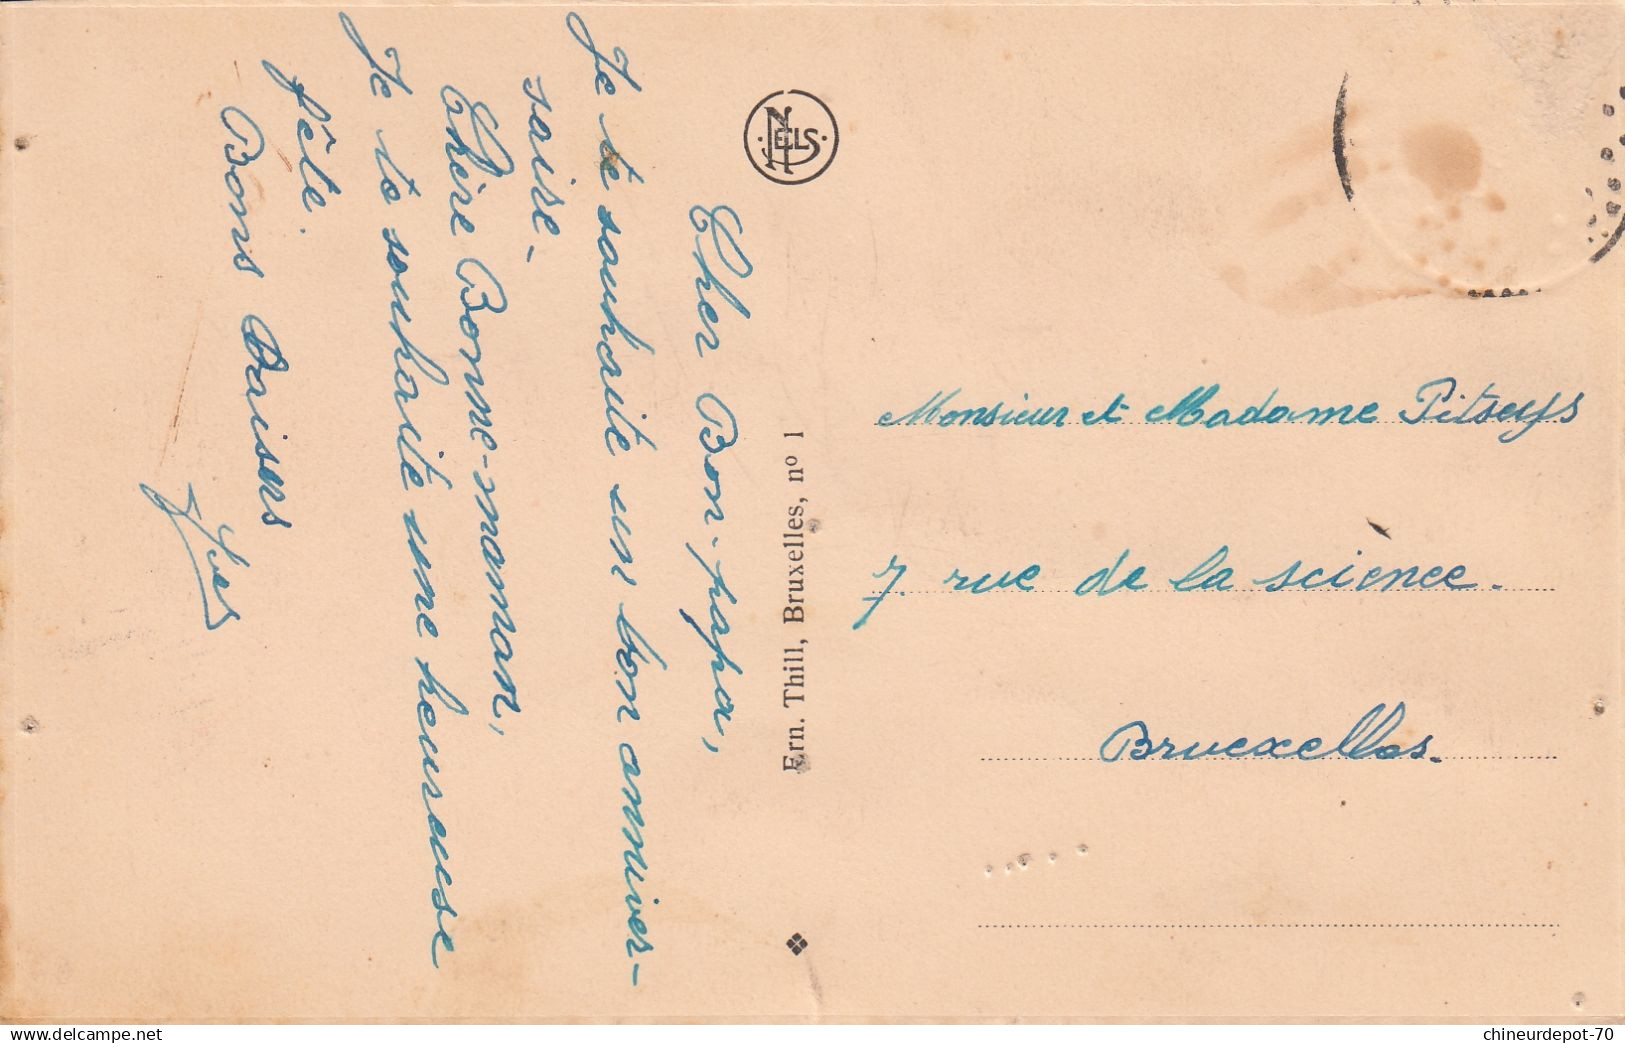 Cher Bon-papa,
Je te souhaite un bon anniver-
saire-
Chère Bonne-maman,
Je te souhaite une heureuse
fête.
Bons Baisers
Yves
NELS
Ern. Thill, Bruxelles, nº 1
Monsieur et Madame Pitseys
7. rue de la science.
Bruexelles.
chineurdepot-70